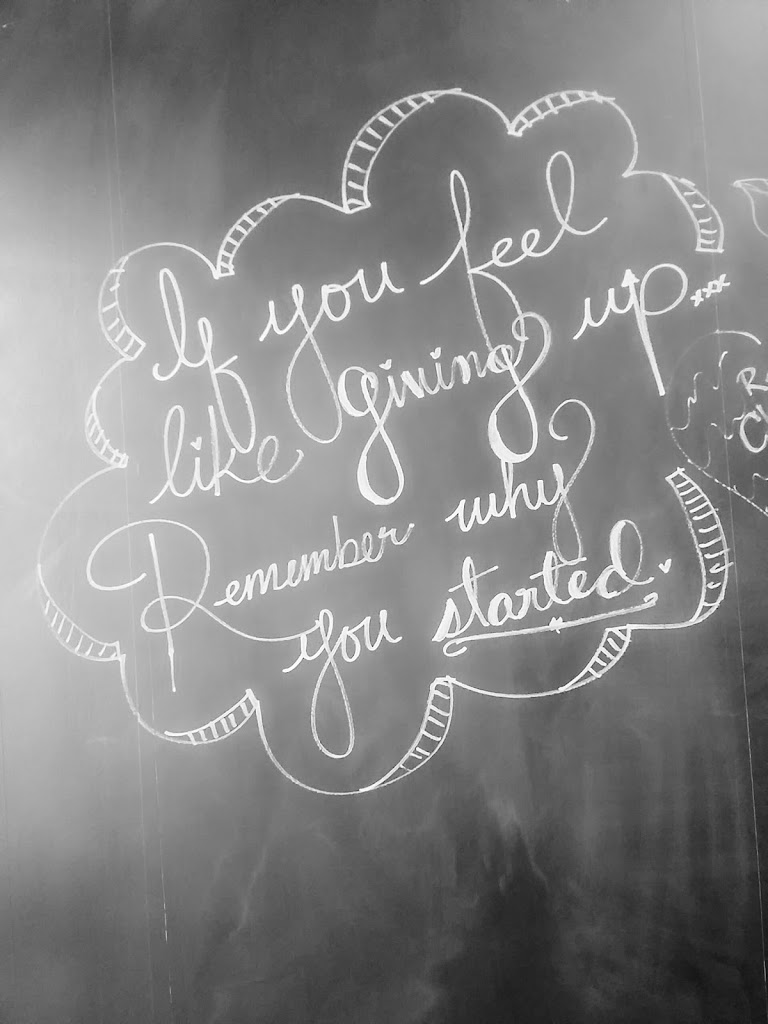 If you feel
like giving up...
Remember why
you started.